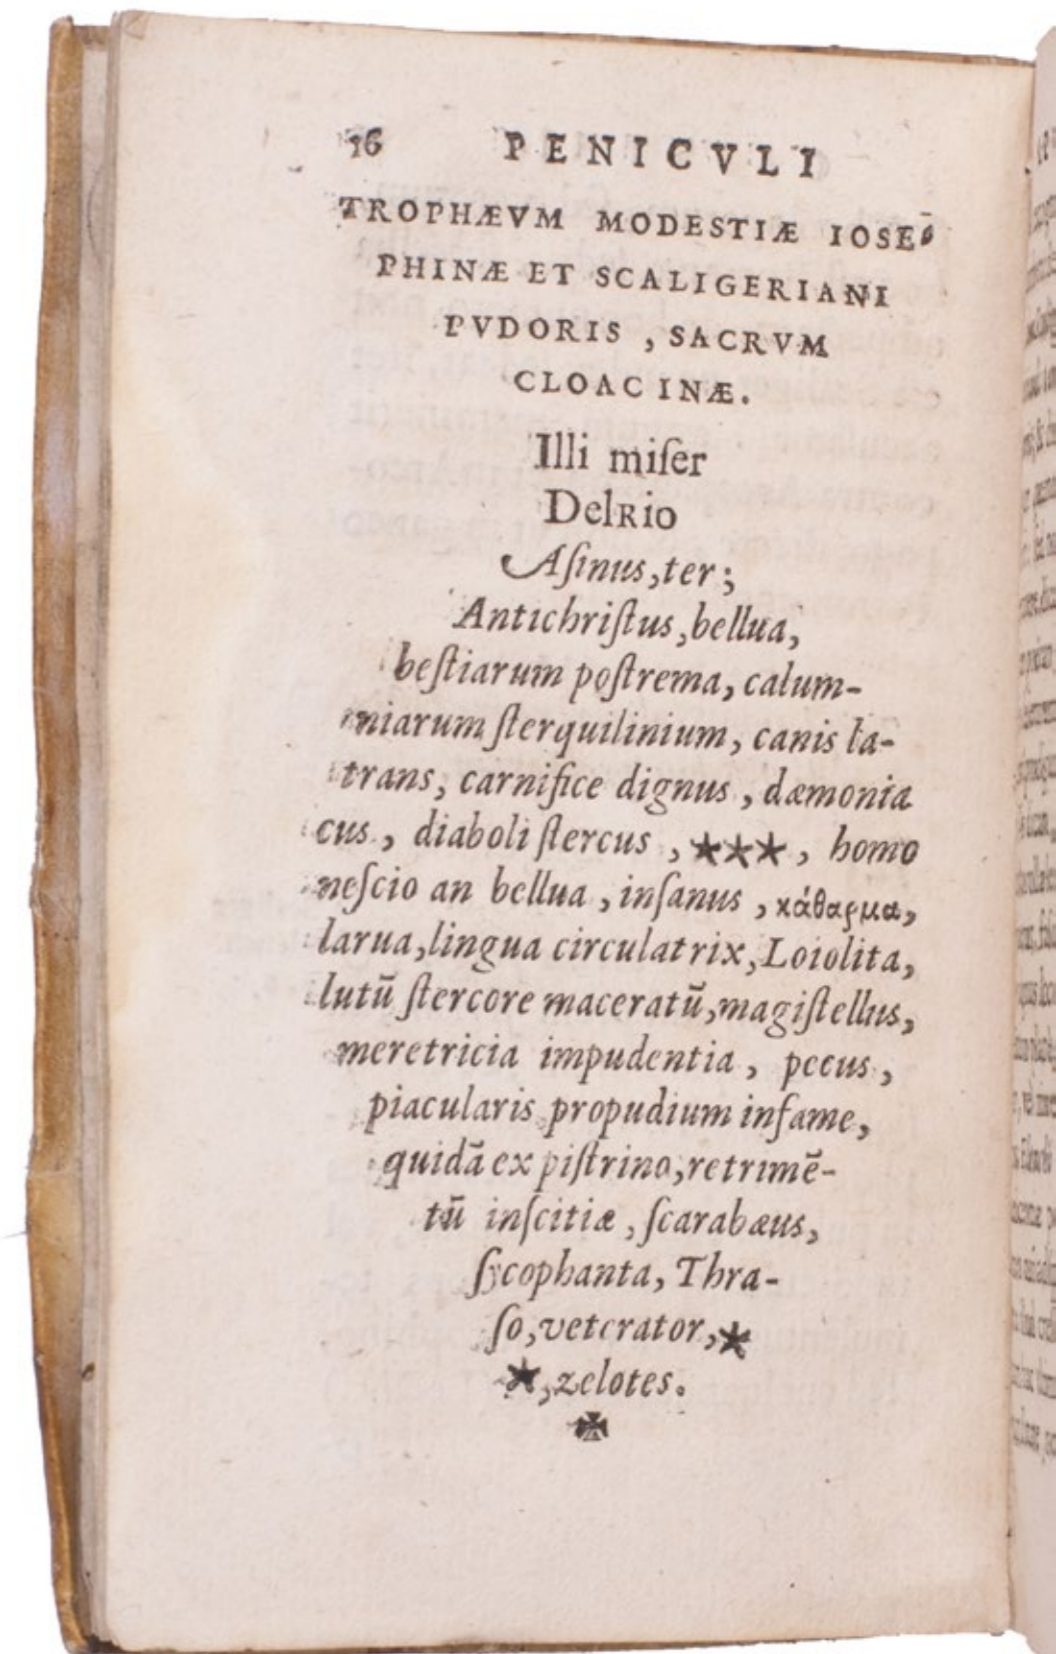 16 PENICVLI
TROPHÆVM MODESTIÆ IOSE-
PHINÆ ET SCALIGERIANI
PVDORIS, SACRVM
CLOACINÆ.
Illi miſer
DelRio
Aſinus, ter;
Antichriſtus, bellua,
beſtiarum poſtrema, calum-
niarum ſterquilinium, canis la-
trans, carnifice dignus, dæmonia
cus, diaboli ſtercus, ★★★, homo
neſcio an bellua, inſanus, κάθαρμα,
larua, lingua circulatrix, Loiolita,
lutū ſtercore maceratū, magiſtellus,
meretricia impudentia, pecus,
piacularis propudium infame,
quidā ex piſtrino, retrimē-
tū inſcitiæ, ſcarabæus,
ſycophanta, Thra-
ſo, veterator, ★
★, zelotes.
✠